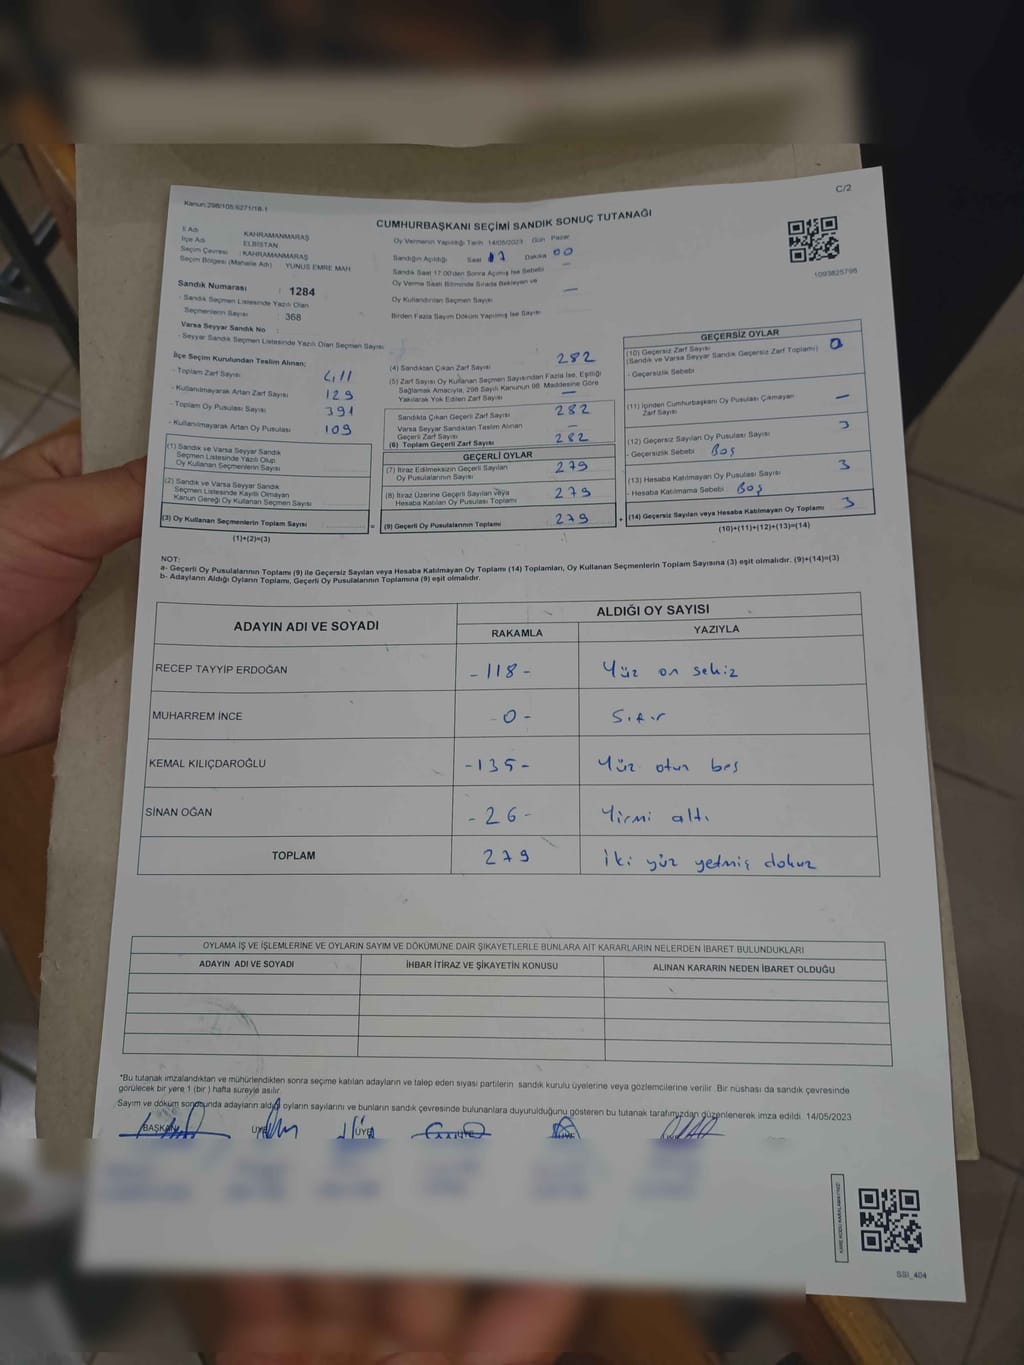 Kanun:298/105;6271/18-1
C/2
CUMHURBAŞKANI SEÇİMİ SANDIK SONUÇ TUTANAĞI
İl Adı KAHRAMANMARAŞ
İlçe Adı ELBİSTAN
Seçim Çevresi : KAHRAMANMARAŞ
Seçim Bölgesi (Mahalle Adı) YUNUS EMRE MAH
Sandık Numarası : 1284
- Sandık Seçmen Listesinde Yazılı Olan
Seçmenlerin Sayısı : 368
Varsa Seyyar Sandık No :
- Seyyar Sandık Seçmen Listesinde Yazılı Olan Seçmen Sayısı
Oy Vermenin Yapıldığı Tarih 14/05/2023 Gün Pazar
Sandığın Açıldığı Saat 17 Dakika 00
Sandık Saat 17:00'den Sonra Açılmış İse Sebebi —
Oy Verme Saati Bitiminde Sırada Bekleyen ve
Oy Kullandırılan Seçmen Sayısı —
Birden Fazla Sayım Döküm Yapılmış İse Sayısı
1093825798
İlçe Seçim Kurulundan Teslim Alınan;
- Toplam Zarf Sayısı 411
- Kullanılmayarak Artan Zarf Sayısı 129
- Toplam Oy Pusulası Sayısı 391
- Kullanılmayarak Artan Oy Pusulası 109
(1) Sandık ve Varsa Seyyar Sandık
Seçmen Listesinde Yazılı Olup
Oy Kullanan Seçmenlerin Sayısı
(2) Sandık ve Varsa Seyyar Sandık
Seçmen Listesinde Kayıtlı Olmayan
Kanun Gereği Oy Kullanan Seçmen Sayısı
(3) Oy Kullanan Seçmenlerin Toplam Sayısı =
(1)+(2)=(3)
(4) Sandıktan Çıkan Zarf Sayısı 282
(5) Zarf Sayısı Oy Kullanan Seçmen Sayısından Fazla İse, Eşitliği
Sağlamak Amacıyla, 298 Sayılı Kanunun 98. Maddesine Göre
Yakılarak Yok Edilen Zarf Sayısı —
Sandıkta Çıkan Geçerli Zarf Sayısı 282
Varsa Seyyar Sandıktan Teslim Alınan
Geçerli Zarf Sayısı —
(6) Toplam Geçerli Zarf Sayısı 282
GEÇERLİ OYLAR
(7) İtiraz Edilmeksizin Geçerli Sayılan
Oy Pusulalarının Sayısı 279
(8) İtiraz Üzerine Geçerli Sayılan veya
Hesaba Katılan Oy Pusulası Toplamı 279
(9) Geçerli Oy Pusulalarının Toplamı 279 +
GEÇERSİZ OYLAR
(10) Geçersiz Zarf Sayısı
(Sandık ve Varsa Seyyar Sandık Geçersiz Zarf Toplamı) 0
- Geçersizlik Sebebi
(11) İçinden Cumhurbaşkanı Oy Pusulası Çıkmayan
Zarf Sayısı —
(12) Geçersiz Sayılan Oy Pusulası Sayısı 3
- Geçersizlik Sebebi Boş
(13) Hesaba Katılmayan Oy Pusulası Sayısı 3
- Hesaba Katılmama Sebebi Boş
(14) Geçersiz Sayılan veya Hesaba Katılmayan Oy Toplamı 3
(10)+(11)+(12)+(13)=(14)
NOT:
a- Geçerli Oy Pusulalarının Toplamı (9) ile Geçersiz Sayılan veya Hesaba Katılmayan Oy Toplamı (14) Toplamları, Oy Kullanan Seçmenlerin Toplam Sayısına (3) eşit olmalıdır. (9)+(14)=(3)
b- Adayların Aldığı Oyların Toplamı, Geçerli Oy Pusulalarının Toplamına (9) eşit olmalıdır.
ADAYIN ADI VE SOYADI ALDIĞI OY SAYISI
RAKAMLA YAZIYLA
RECEP TAYYİP ERDOĞAN -118- Yüz on sekiz
MUHARREM İNCE -0- Sıfır
KEMAL KILIÇDAROĞLU -135- Yüz otuz beş
SİNAN OĞAN -26- Yirmi altı
TOPLAM 279 İki yüz yetmiş dokuz
OYLAMA İŞ VE İŞLEMLERİNE VE OYLARIN SAYIM VE DÖKÜMÜNE DAİR ŞİKAYETLERLE BUNLARA AİT KARARLARIN NELERDEN İBARET BULUNDUKLARI
ADAYIN ADI VE SOYADI İHBAR İTİRAZ VE ŞİKAYETİN KONUSU ALINAN KARARIN NEDEN İBARET OLDUĞU
*Bu tutanak imzalandıktan ve mühürlendikten sonra seçime katılan adayların ve talep eden siyasi partilerin sandık kurulu üyelerine veya gözlemcilerine verilir. Bir nüshası da sandık çevresinde
görülecek bir yere 1 (bir) hafta süreyle asılır.
Sayım ve döküm sonucunda adayların aldığı oyların sayılarını ve bunların sandık çevresinde bulunanlara duyurulduğunu gösteren bu tutanak tarafımızdan düzenlenerek imza edildi. 14/05/2023
BAŞKAN ÜYE ÜYE ÜYE ÜYE
SSI_404